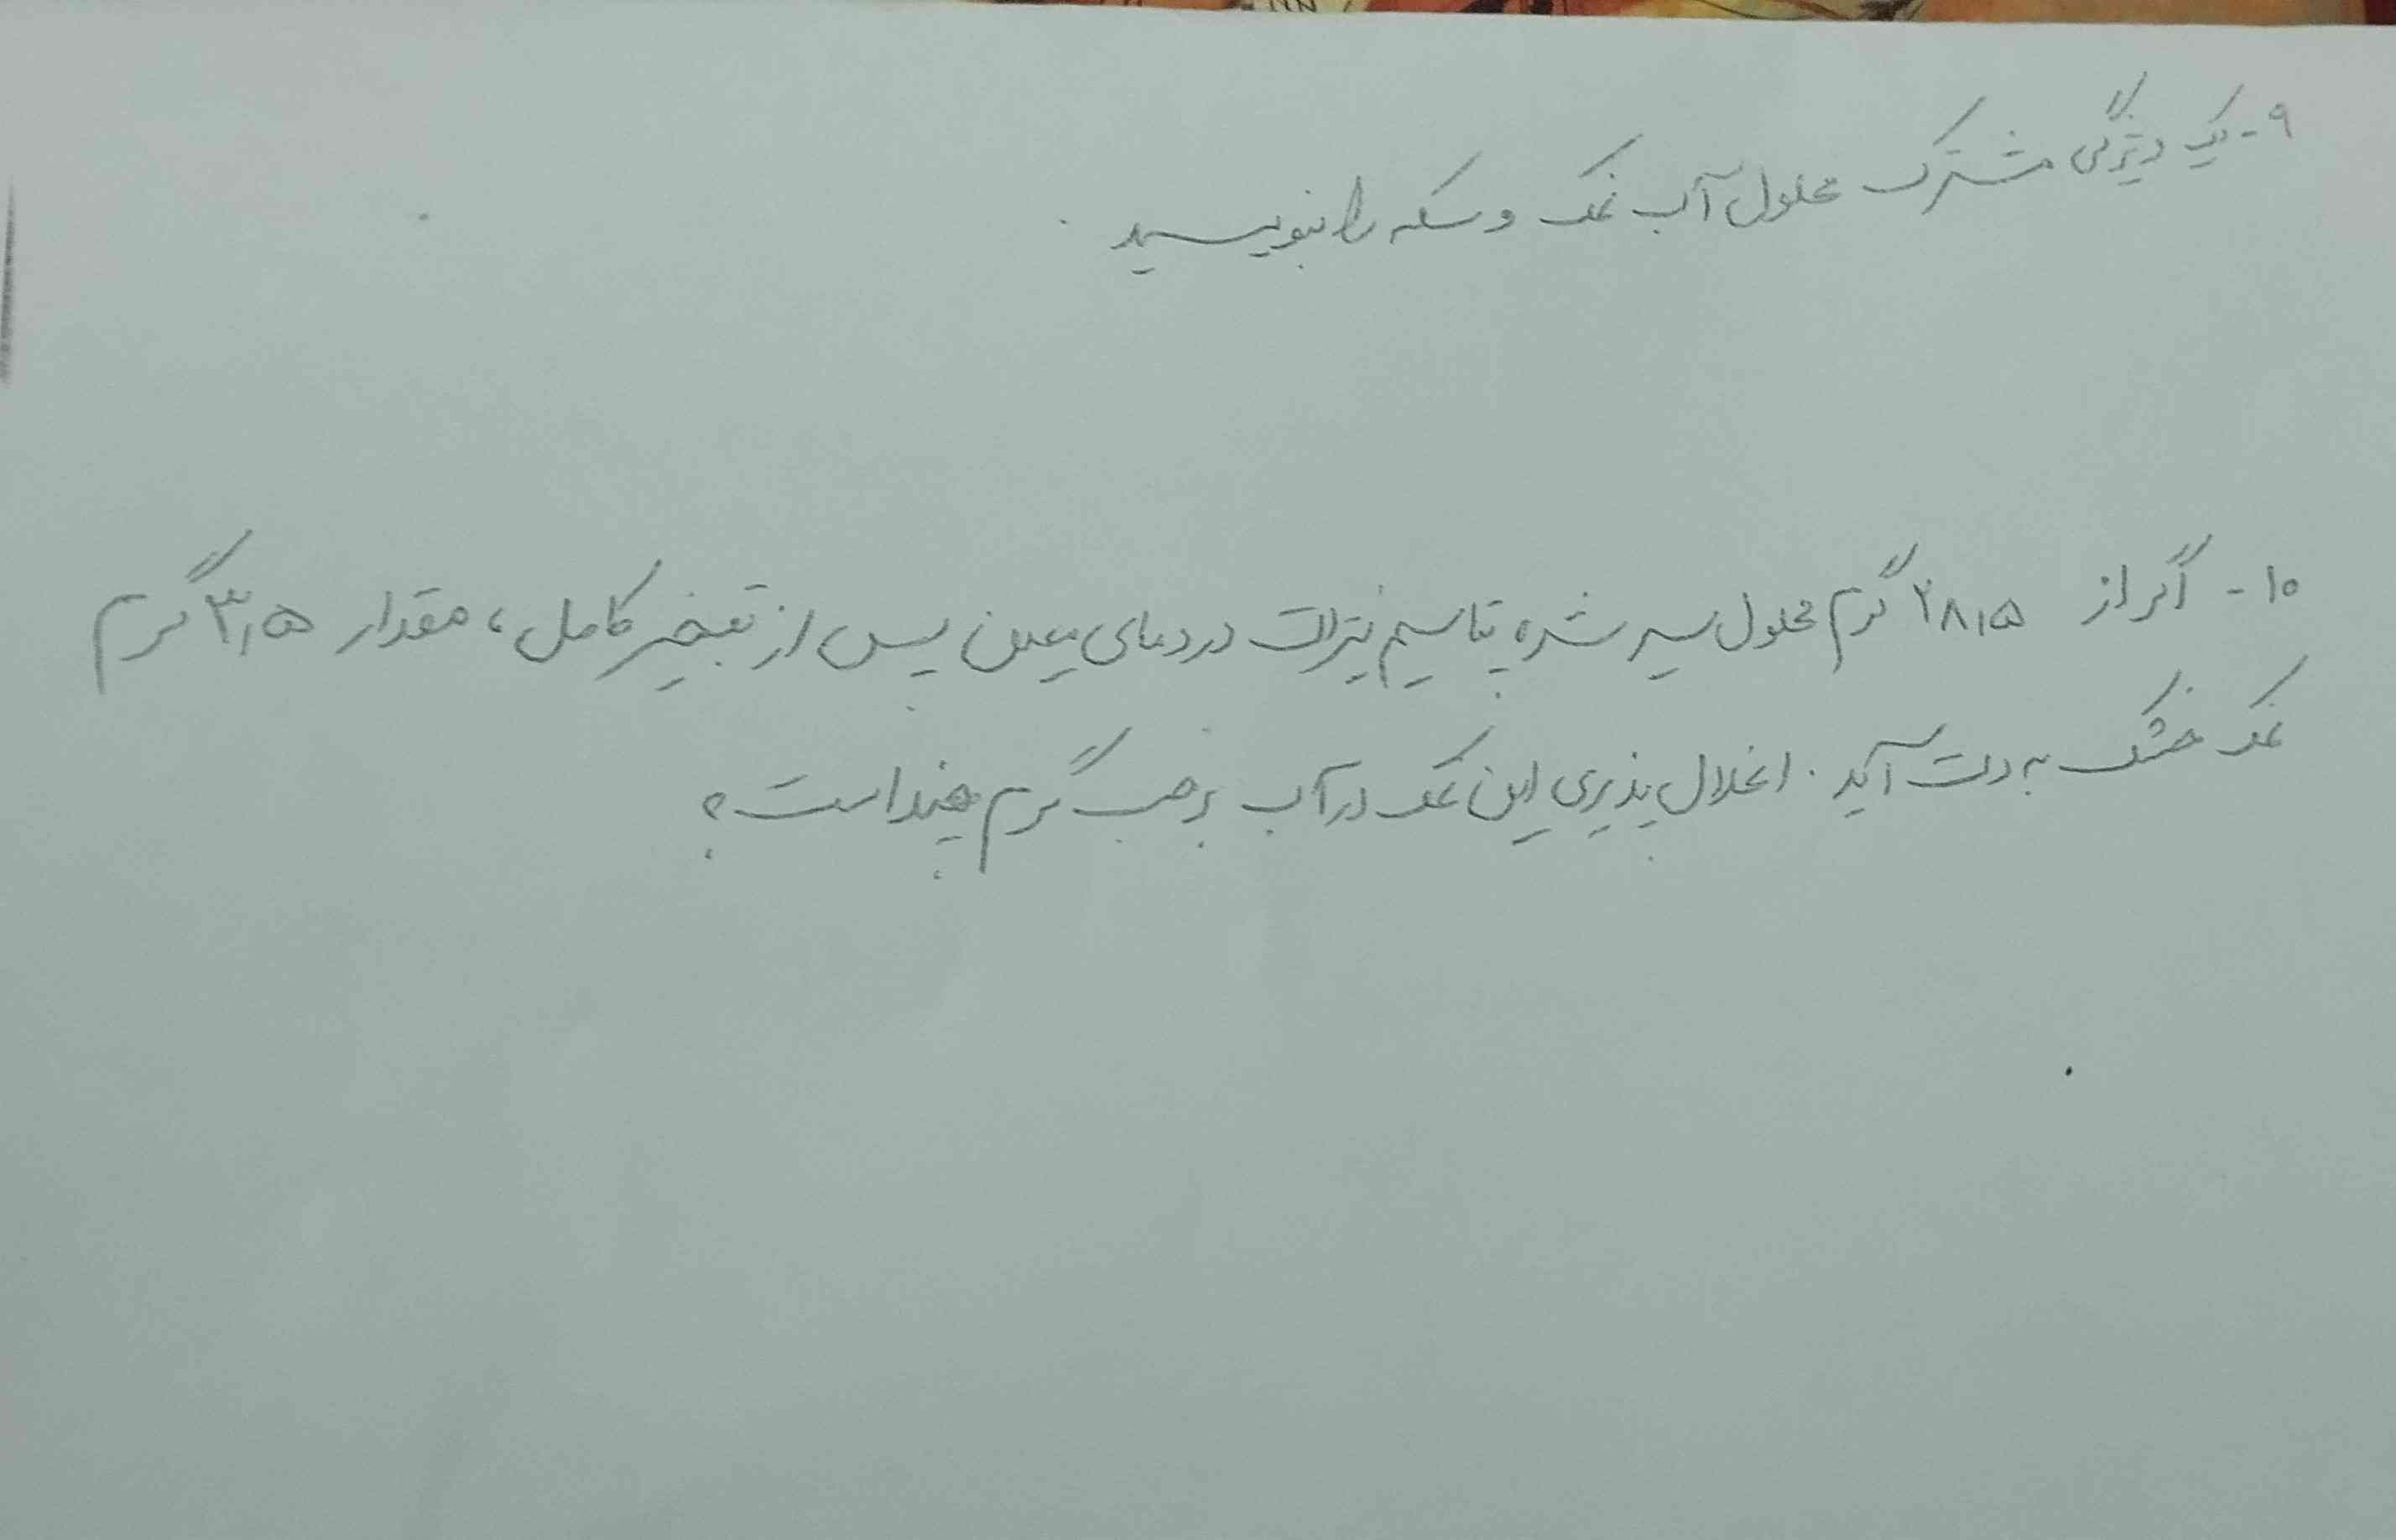 ۹- یک ویژگی مشترک محلول آب نمک و سکه را بنویسید.
۱۰- اگر از ۲۸,۵ گرم محلول سیر شده پتاسیم نیترات در دمای معین پس از تبخیر کامل، مقدار ۳,۵ گرم
نمک خشک به دست آید. انحلال پذیری این نمک در آب برحسب گرم چند است؟